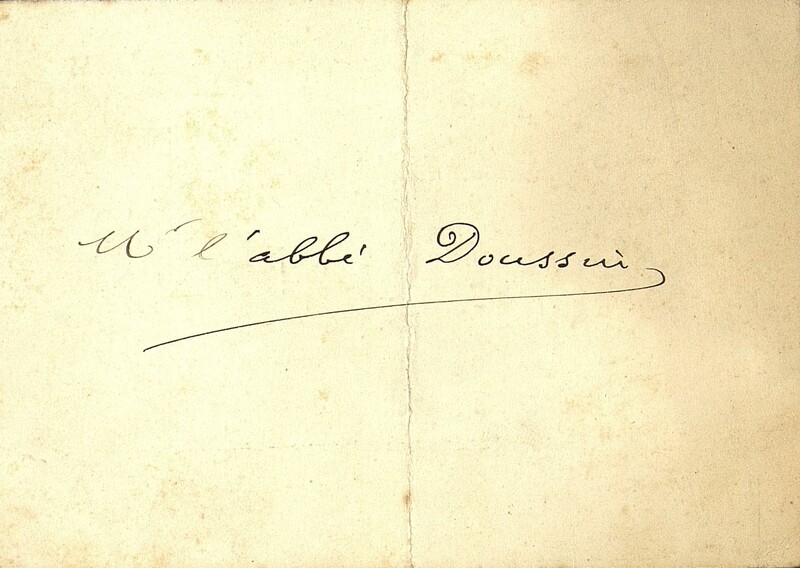 Mr l'abbé Doussin